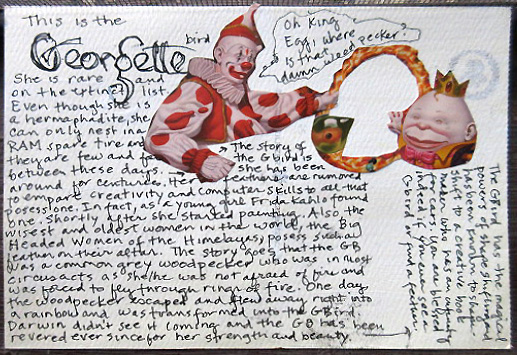 This is the
Georgette bird
She is rare and
on the extinct list.
Even though she is
a hermaphadite, she
can only nest in a
RAM spare tire and
they are few and far
between these days. → The story of
the G bird is
She has been
around for centuries. Her feathers are rumored
to empart creativity and computer skills to all that
possess one. In fact, as a young girl Frida Kahlo found
one. Shortly after she started painting. Also the
wisest and oldest women in the world, the Big
Headed Women of the Himelayas, posess such a
feather on their alter. The story goes that the GB
was a common grey woodpecker who was in most
circus acts as she/he was not afraid of fire and
was forced to fly through rings of fire. One day
the woodpecker escaped and flew away right into
a rainbow and was transformed into the GBird.
Darwin didn't see it coming and the GB has been
revered ever since for her strength and beauty.
Oh King
Egg, where
is that
damn woodpecker?
The GBird has the magical
powers of shape shifting and
has been known to shape
shift to a creative book
maker who has an affinity
for bears. You are blessed
indeed if you ever see a
Gbird or find a feather.